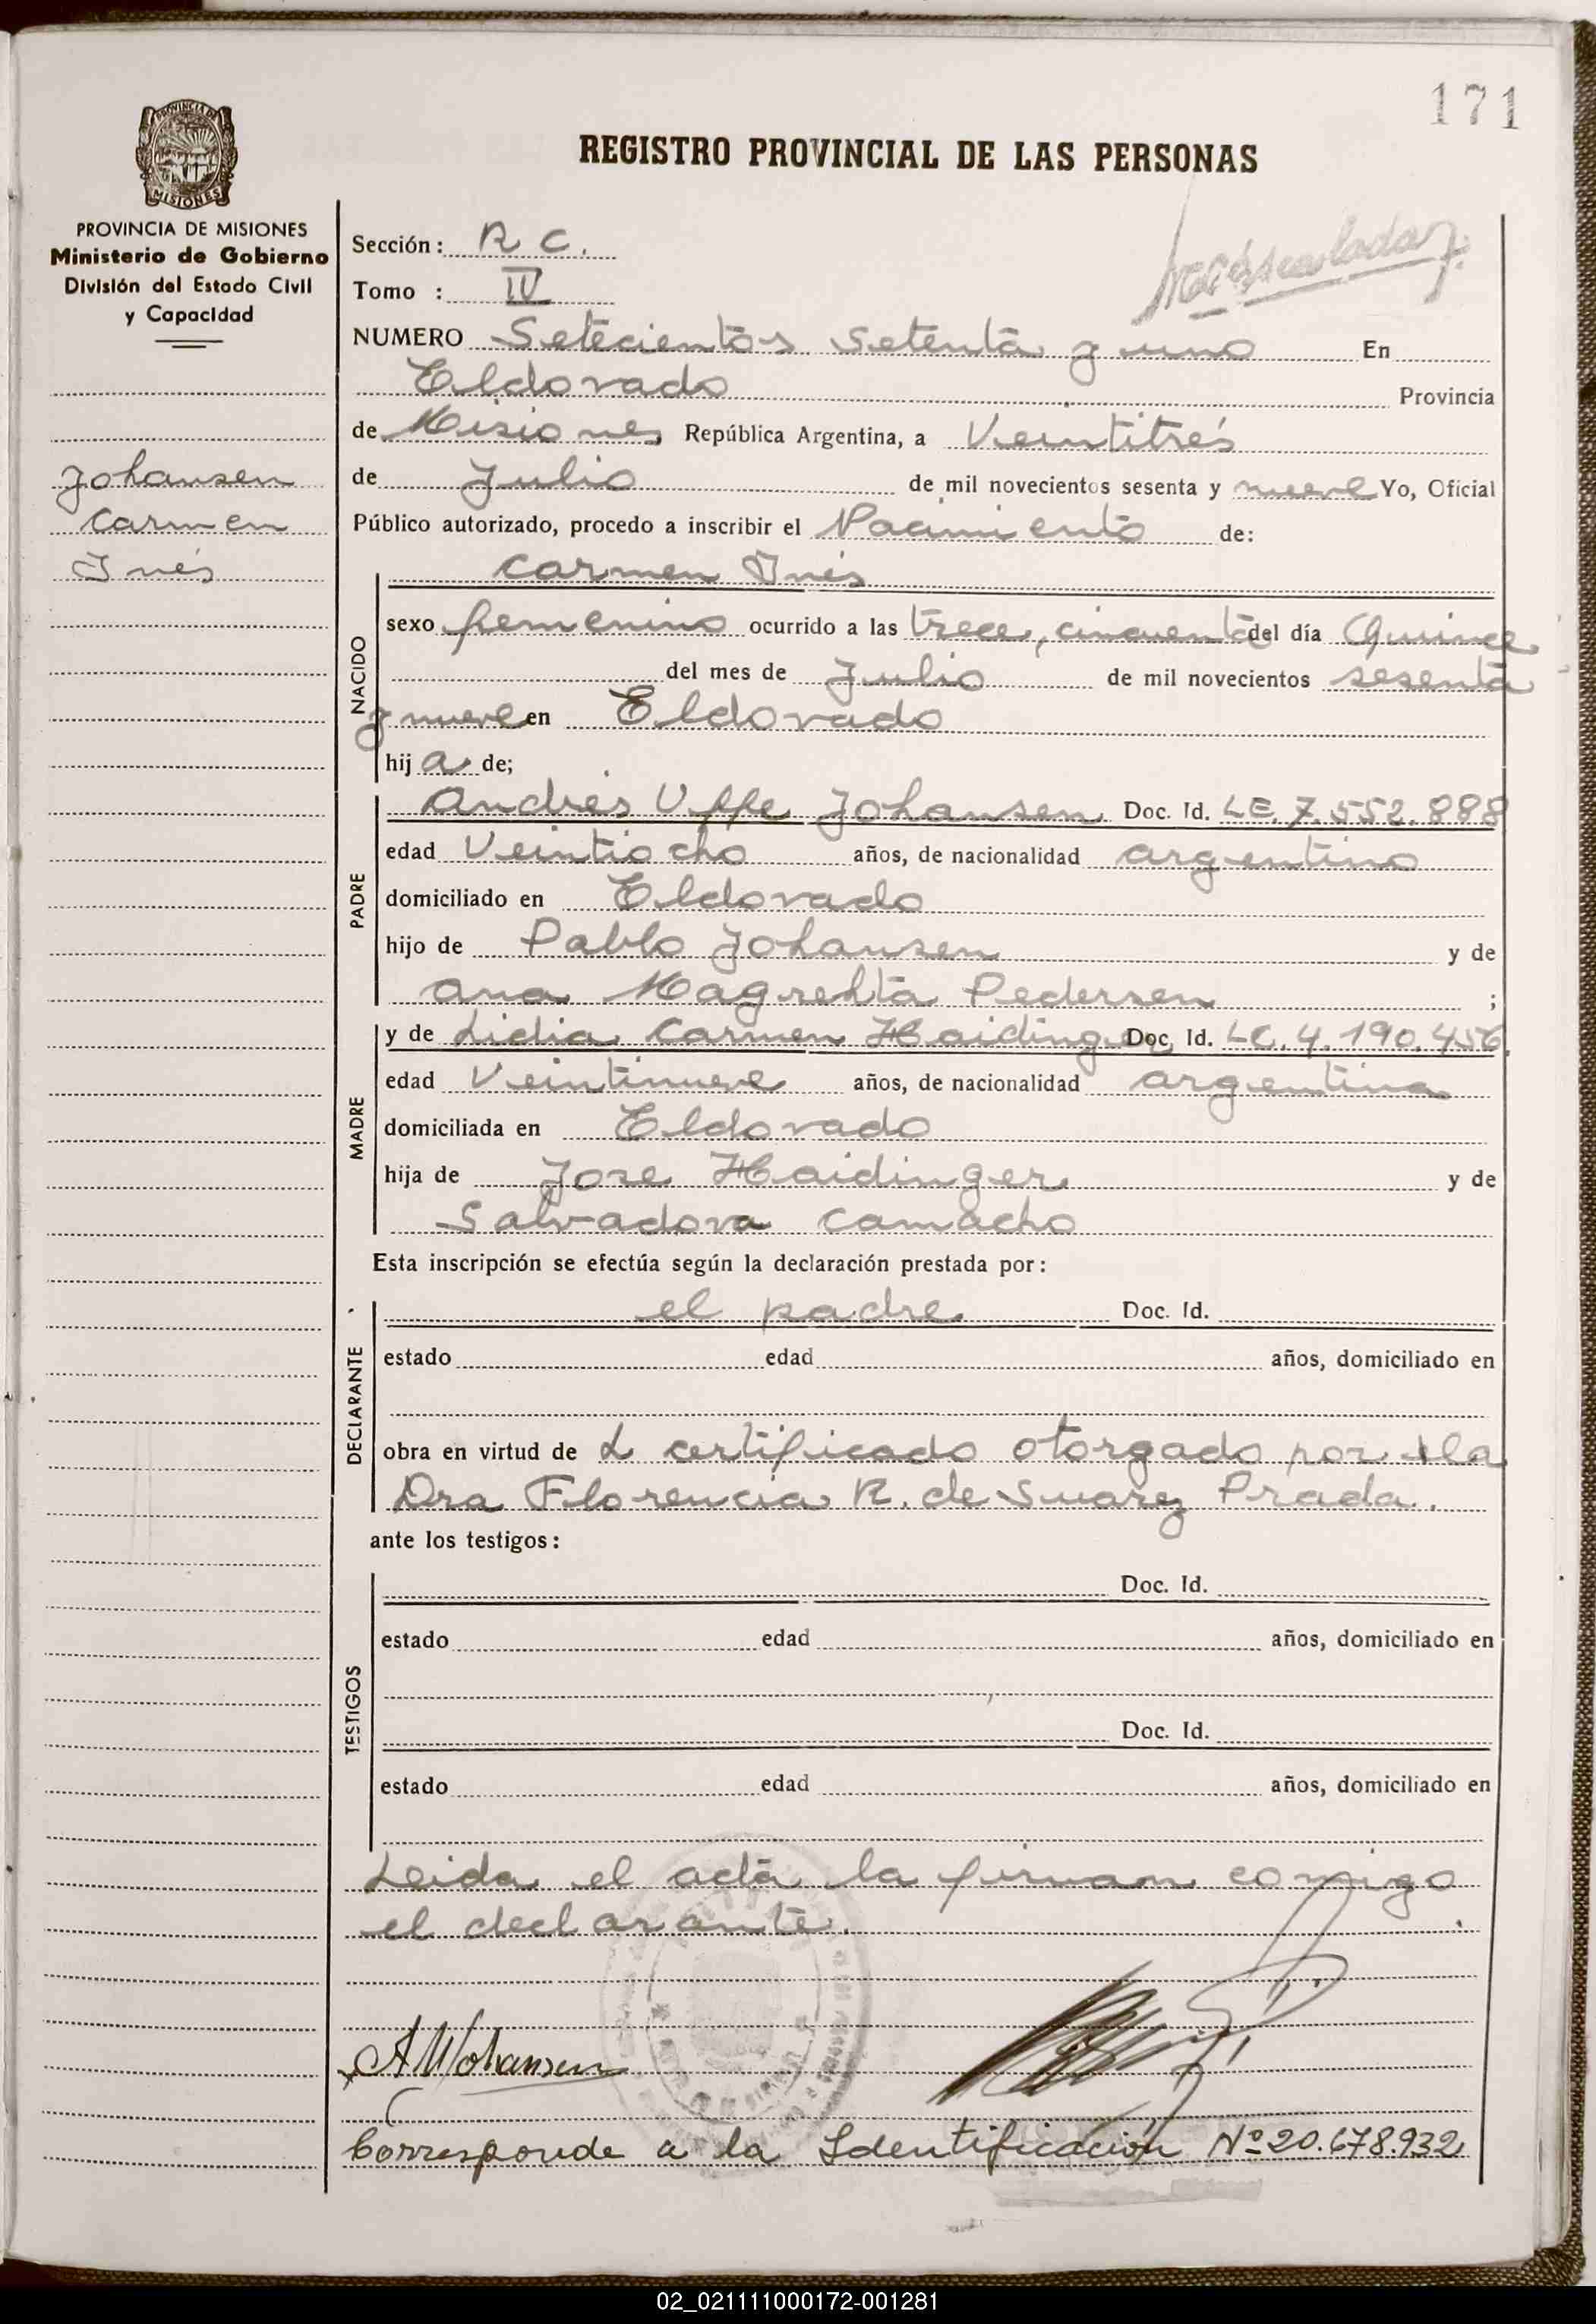 171
PROVINCIA DE MISIONES
REGISTRO PROVINCIAL DE LAS PERSONAS
PROVINCIA DE MISIONES
Ministerio de Gobierno
División del Estado Civil
y Capacidad
Johansen
Carmen
Inés
Sección: R C.
Tomo : IV
NUMERO Setecientos setenta y uno En
Eldorado Provincia
de Misiones República Argentina, a Veintitrés
de Julio de mil novecientos sesenta y nueve Yo, Oficial
Público autorizado, procedo a inscribir el Nacimiento de:
Carmen Inés
NACIDO
sexo femenino ocurrido a las trece, cincuenta del día Quince
del mes de Julio de mil novecientos sesenta
y nueve en Eldorado
hij a de;
PADRE
Andrés Uffe Johansen Doc. Id. LE. 7.552.888
edad Veintiocho años, de nacionalidad argentino
domiciliado en Eldorado
hijo de Pablo Johansen y de
Ana Magrehta Pedersen ;
MADRE
y de Lidia Carmen Haidinger Doc. Id. LC. 4.190.456
edad Veintinueve años, de nacionalidad argentina
domiciliada en Eldorado
hija de Jose Haidinger y de
Salvadora Camacho
Esta inscripción se efectúa según la declaración prestada por:
DECLARANTE
el padre Doc. Id.
estado edad años, domiciliado en
obra en virtud de L certificado otorgado por la
Dra Florencia R. de Suarez Prada.
ante los testigos:
TESTIGOS
Doc. Id.
estado edad años, domiciliado en
Doc. Id.
estado edad años, domiciliado en
Leida el acta la firman comigo
el declarante.
Corresponde a la Identificación Nº 20.678.932
02_021111000172-001281